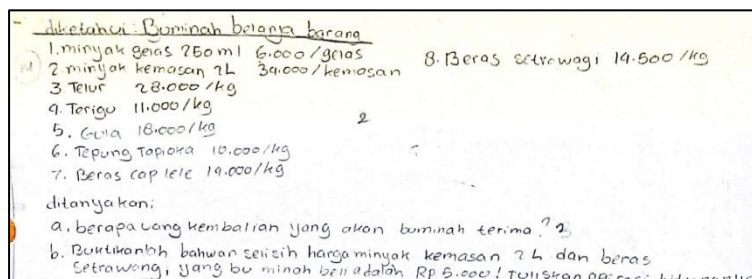 diketahui: Buminah belanja barang
1. minyak gelas 250 ml 6.000/gelas
8. Beras setrawagi 14.500/kg
2 minyak kemasan 2L 39.000/kemasan
3 Telur 28.000/kg
4. Terigu 11.000/kg
2
5. Gula 18.000/kg
6. Tepung Tapioka 10.000/kg
7. Beras cap lele 14.000/kg
ditanyakan:
a. berapa uang kembalian yang akan buminah terima? 2
b. Buktikanlah bahwan selisih harga minyak kemasan 2L dan beras
Setrawang, yang bu minah beli adalah Rp 5.000! Tuliskan